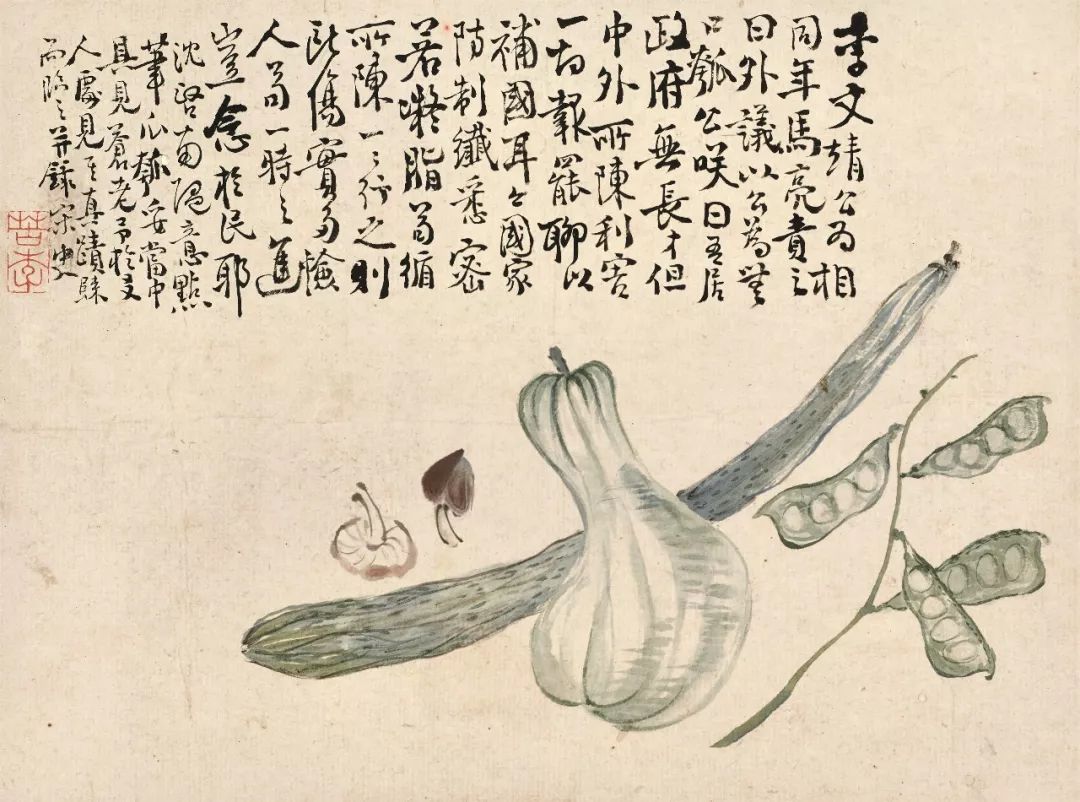 李文靖公为相
同年馬亮責之
曰外議以公為無
口瓠公咲曰吾居
政府無長才但
中外所陳利害
一切報罷聊以
補國耳今國家
防制纖悉密
若凝脂苟循
所陳一一行之則
所傷實多憸
人苟一時之進
豈念於民耶
沈啓南隨意點
筆瓜瓠妥當中
具見蒼老予於友
人處見其真蹟
而臨之并錄宋史
苦李